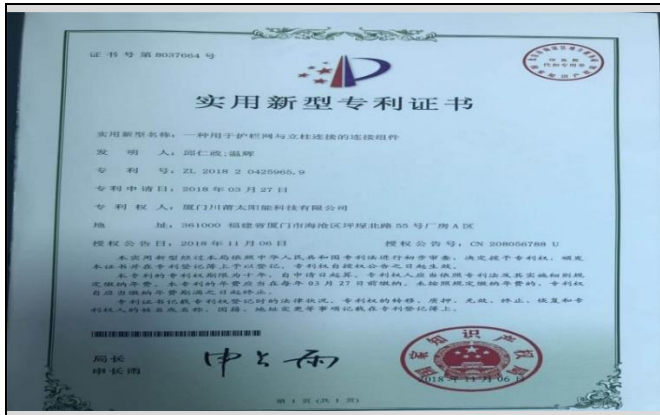 证书号第8037664号
实用新型专利证书
实用新型名称：一种用于护栏网与立柱连接的连接组件
发明人：邱仁政;温辉
专利号：ZL 2018 2 0425965.9
专利申请日：2018年03月27日
专利权人：厦门川莆太阳能科技有限公司
地址：361000 福建省厦门市海沧区坪埕北路55号厂房A区
授权公告日：2018年11月06日 授权公告号：CN 208056788 U
本实用新型经过本局依照中华人民共和国专利法进行初步审查，决定授予专利权，颁发
本证书并在专利登记簿上予以登记。专利权自授权公告之日起生效。
本专利的专利权期限为十年，自申请日起算。专利权人应当依照专利法及其实施细则规
定缴纳年费。本专利的年费应当在每年03月27日前缴纳。未按照规定缴纳年费的，专利权
自应当缴纳年费期满之日起终止。
专利证书记载专利权登记时的法律状况。专利权的转移、质押、无效、终止、恢复和专
利权人的姓名或名称、国籍、地址变更等事项记载在专利登记簿上。
局长
申长雨
申长雨
国家知识产权局
2018年11月06日
第1页(共1页)